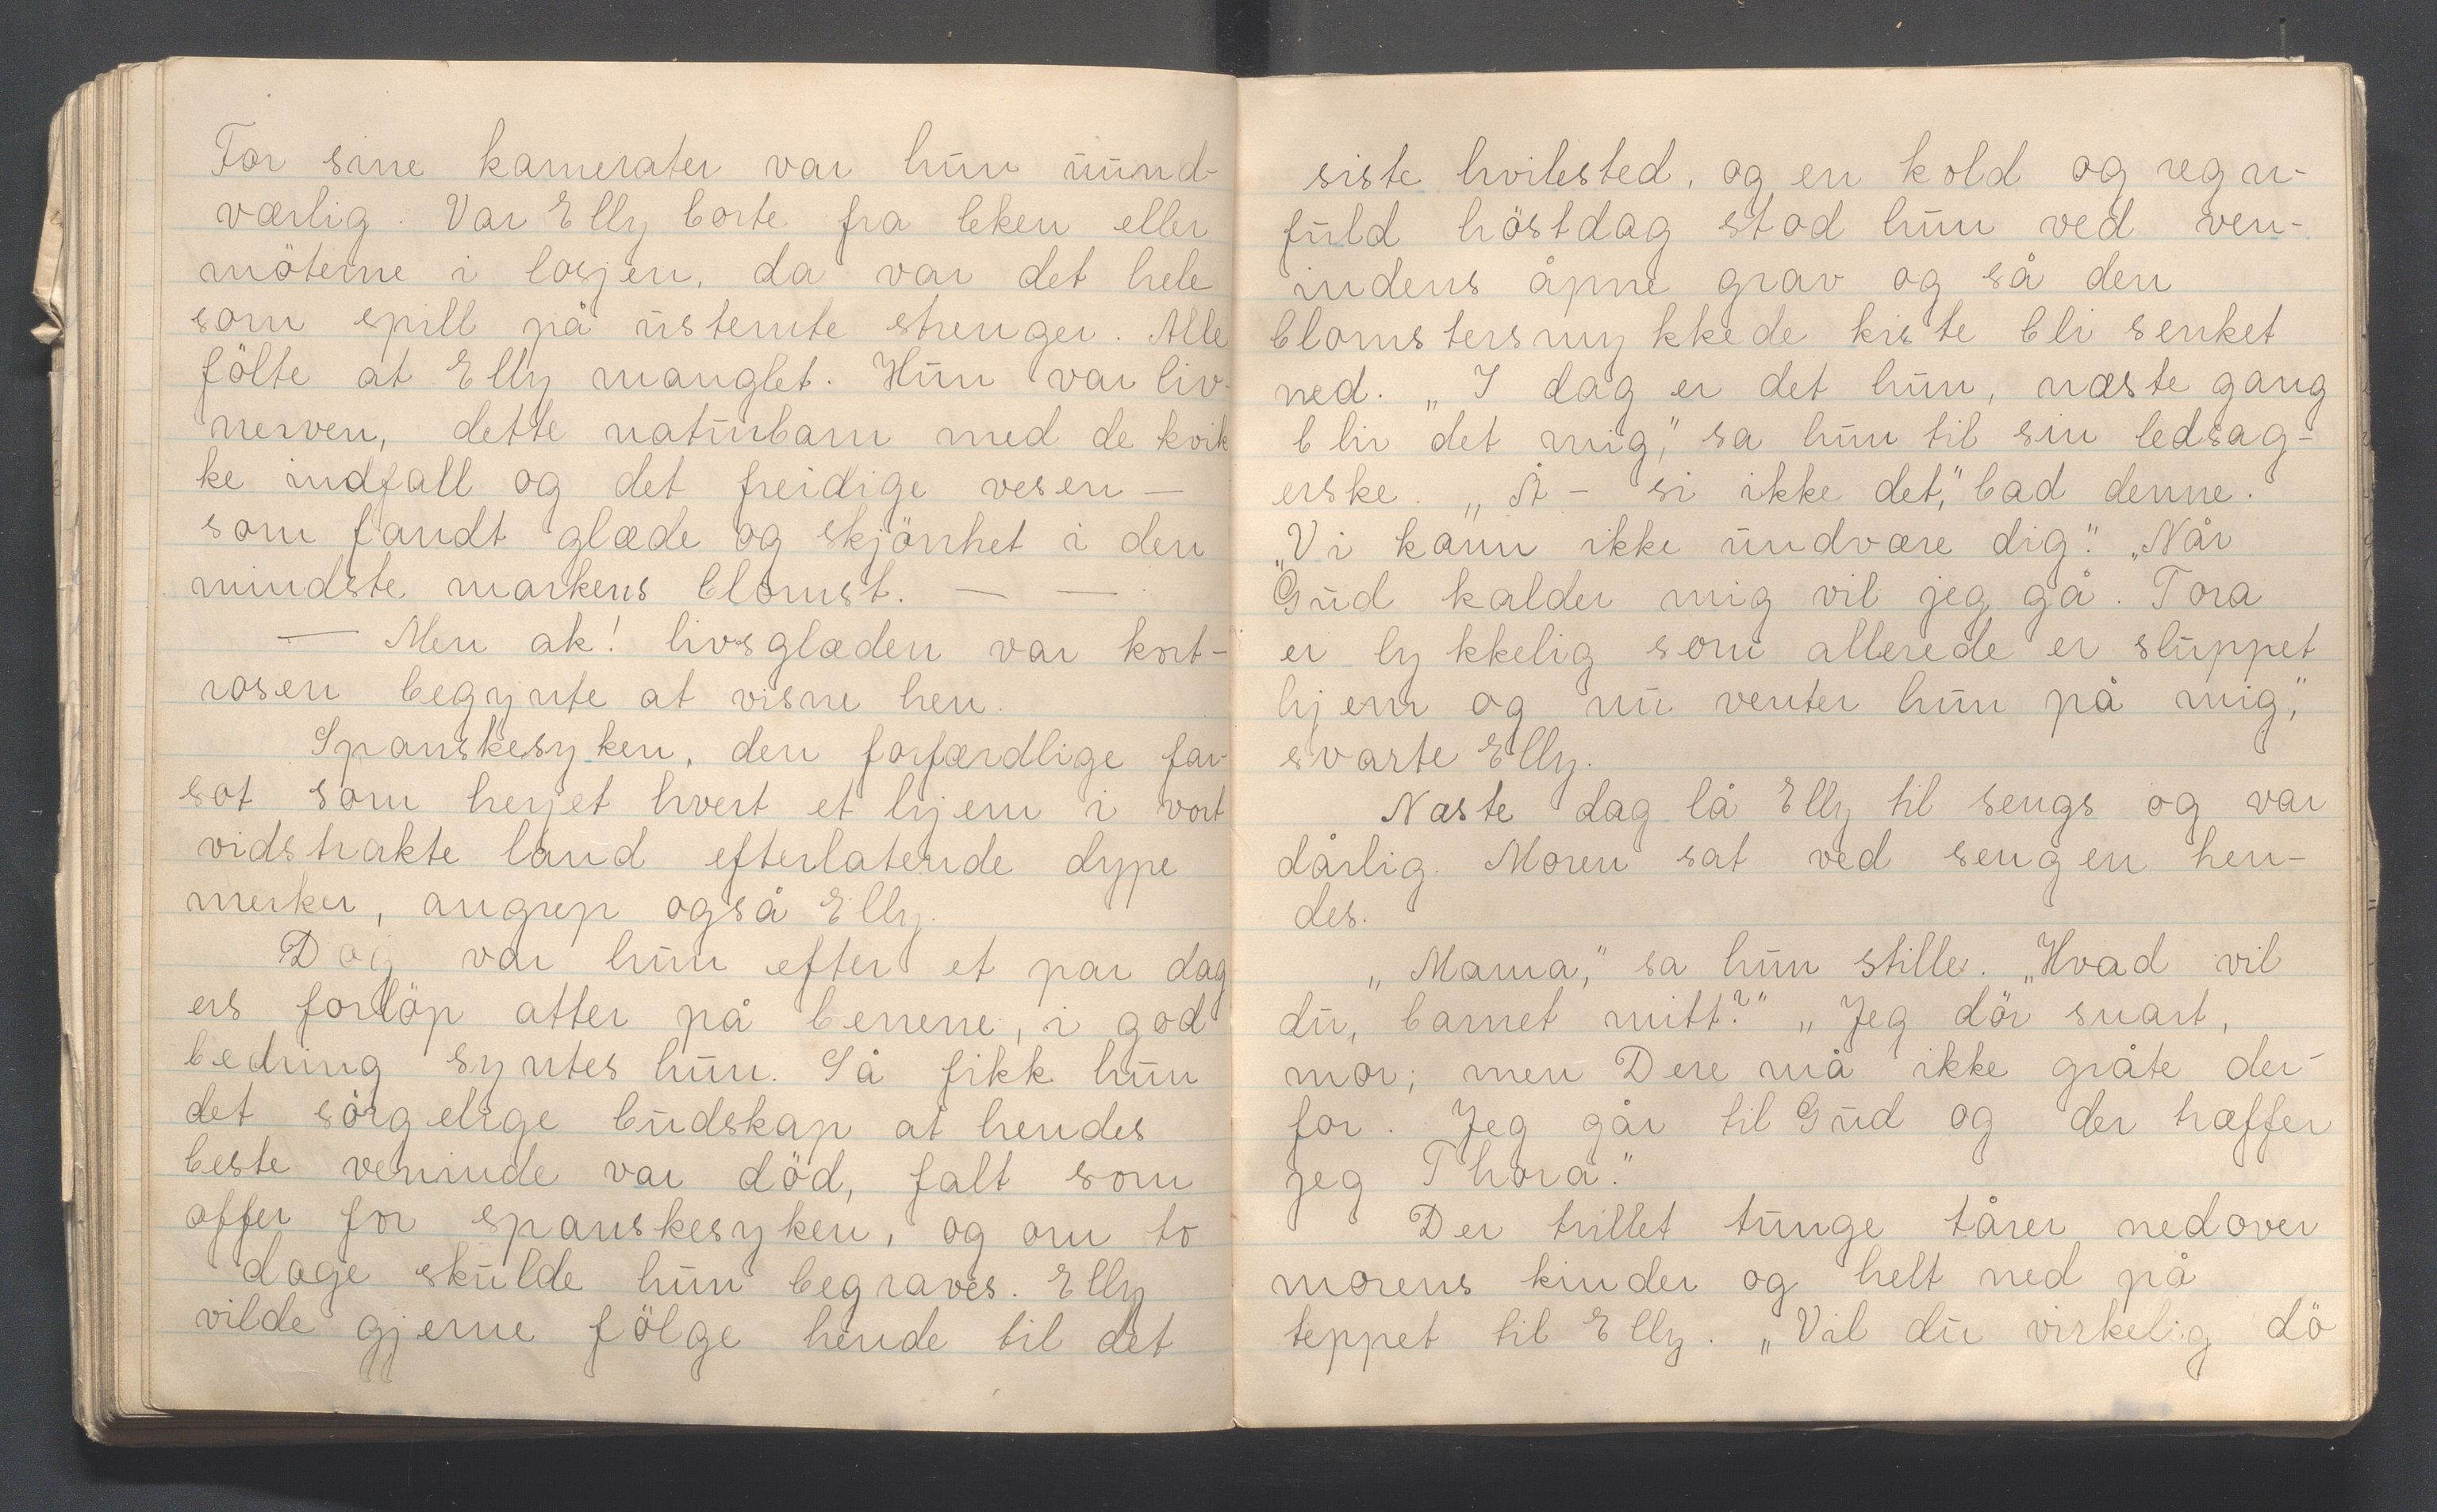 For sine kamerater var hun uund-
værlig. Var Elly borte fra leken eller
möterne i losjen, da var det hele
som spill på ustemte strenger. Alle
fölte at Elly manglet. Hun var liv-
nerven, dette naturbarn med de kvik
ke indfall og det freidige vesen —
som fandt glæde og skjönhet i den
mindste markens blomst. — —
— Men ak! livsglæden var kort-
rosen begynte at visne hen.
Spanskesyken, den forfærdlige far-
sot som herjet hvert et hjem i vort
vidstrakte land efterlatende dype
merker, angrep også Elly.
Dog var hun efter et par dag
ers forlöp atter på benene, i god
bedring syntes hun. Så fikk hun
det sörgelige budskap at hendes
beste veninde var död, falt som
offer for spanskesyken, og om to
dage skulde hun begraves. Elly
vilde gjerne fölge hende til det
siste hvilested, og en kold og regn-
fuld höstdag stod hun ved ven-
indens åpne grav og så den
blomstersmykkede kiste bli senket
ned. „I dag er det hun, næste gang
blir det mig," sa hun til sin ledsag-
erske. „Å - si ikke det," bad denne.
„Vi kann ikke undvære dig." „Når
Gud kalder mig vil jeg gå. Tora
er lykkelig som allerede er sluppet
hjem og nu venter hun på mig,"
svarte Elly.
Næste dag lå Elly til sengs og var
dårlig. Moren sat ved sengen hen-
des.
„Mama," sa hun stille. „Hvad vil
du, barnet mitt?" „Jeg dör snart,
mor; men Dere må ikke gråte der-
for. Jeg går til Gud og der træffer
jeg Thora."
Der trillet tunge tårer nedover
morens kinder og helt ned på
teppet til Elly. „Vil du virkelig dö